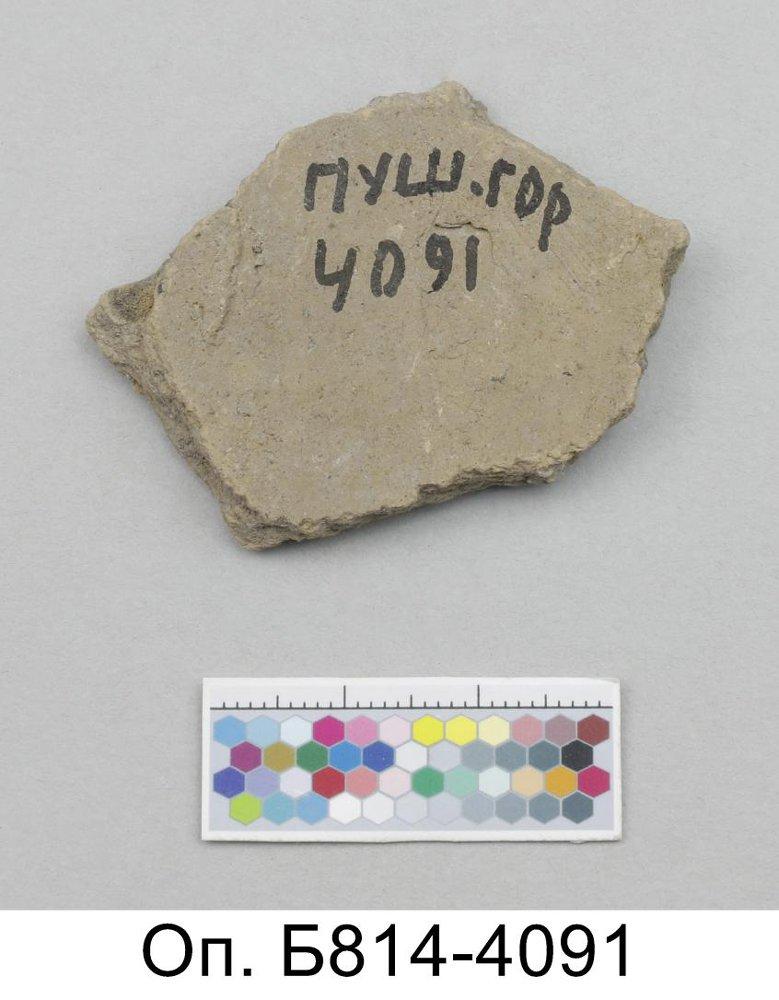 ПУШ.ГОР
4091
Оп. Б814-4091